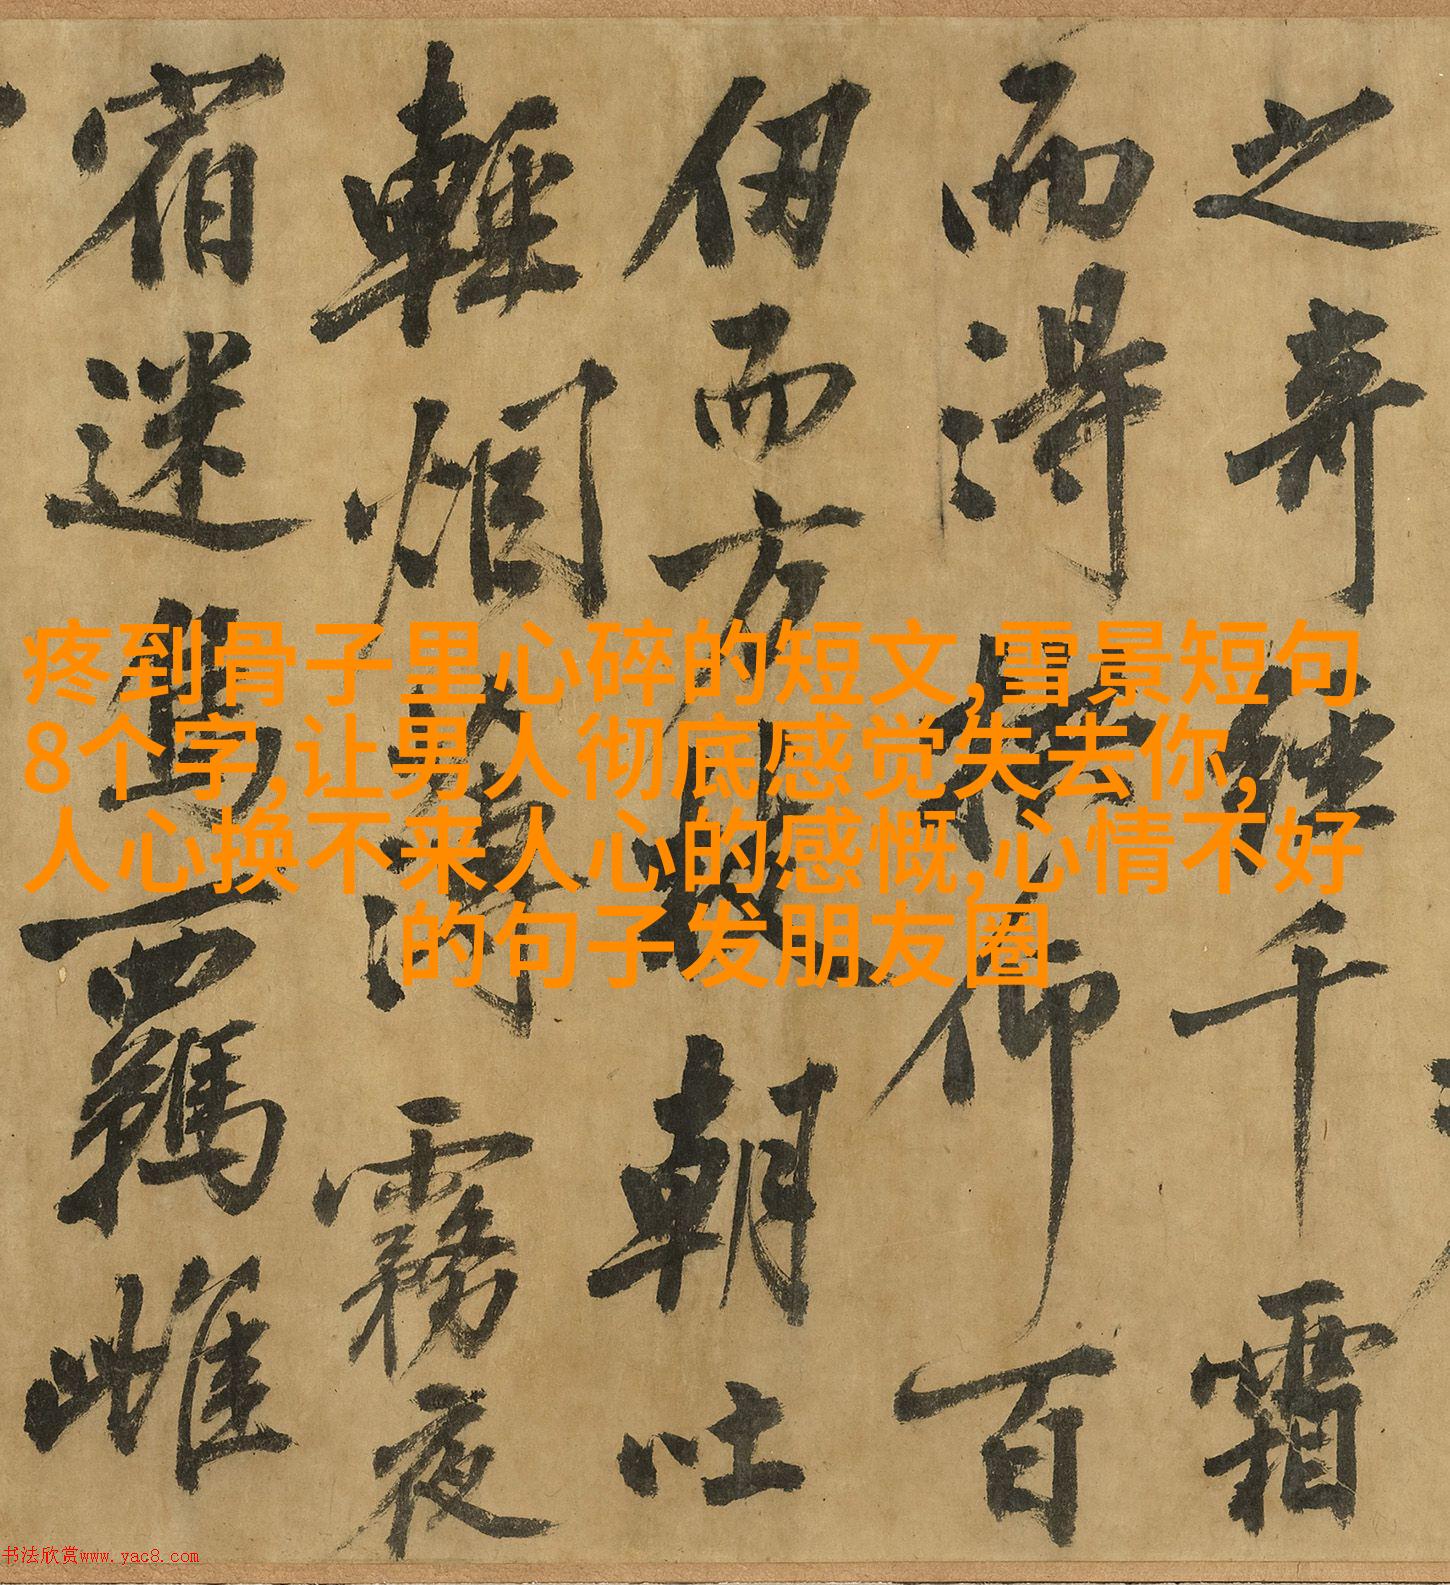 之奇 千霜
而得 仰百
仞而方 朝吐
輕烟薄霧夜
宿迷鳥羈雌
疼到骨子里心碎的短文,雪景短句
8个字,让男人彻底感觉失去你,
人心换不来人心的感慨,心情不好
的句子发朋友圈
书法欣赏www.yac8.com